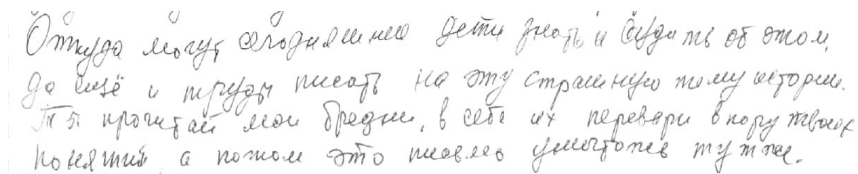 Откуда могут сегодняшние дети знать и судить об этом,
да ещё и труды писать на эту страшную тему истории.
Ты прочитай мои бредни, в себе их перевари в пору твоих
понятий, а потом это письмо уничтожь тут же.